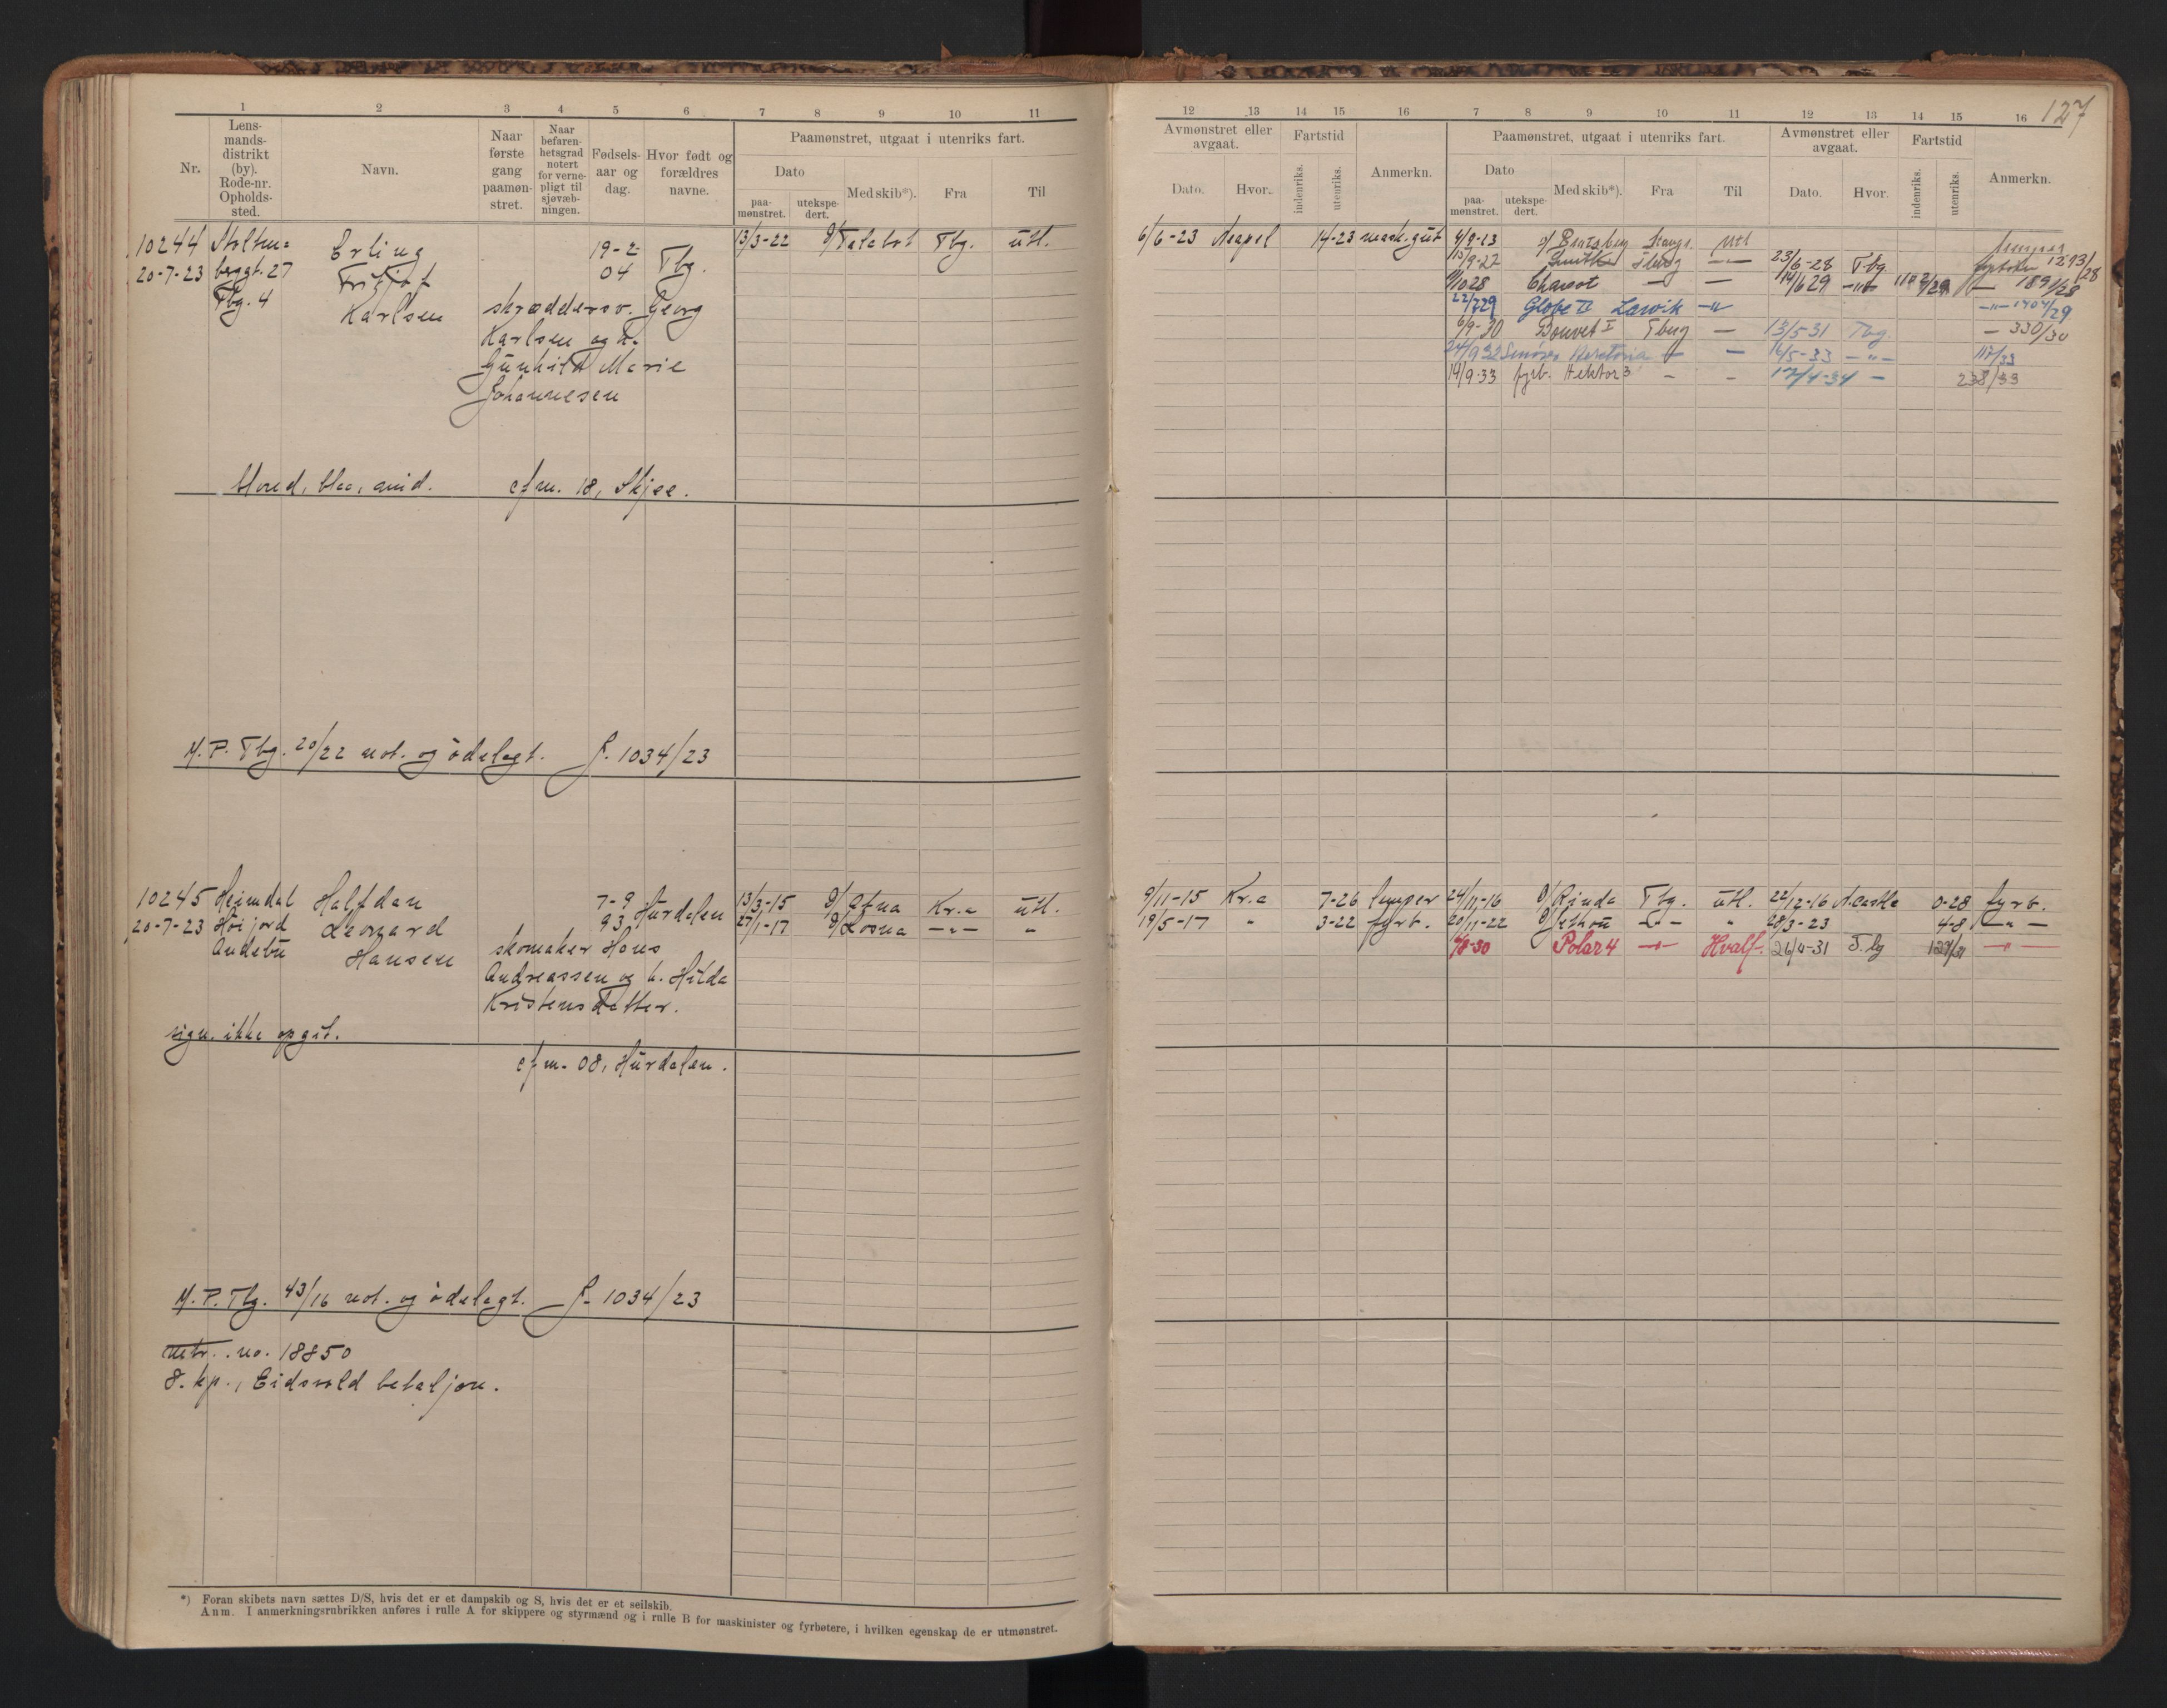 127
1 2 3 4 5 6 7 8 9 10 11
Nr.
Lens-
mands-
distrikt
(by).
Rode-nr.
Opholds-
sted.
Navn.
Naar
første
gang
paamøn-
stret.
Naar
befaren-
hetsgrad
notert
for verne-
pligt til
sjøvæb-
ningen.
Fødsels-
aar og
dag.
Hvor født og
forældres
navne.
Paamønstret, utgaat i utenriks fart.
Dato
paa-
mønstret.
utekspe-
dert.
Med skib*).
Fra
Til
12 13 14 15 16 7 8 9 10 11 12 13 14 15 16
Avmønstret eller
avgaat.
Dato.
Hvor.
Fartstid
indenriks.
utenriks.
Anmerkn.
Paamønstret, utgaat i utenriks fart.
Dato
paa-
mønstret.
utekspe-
dert.
Med skib*).
Fra
Til
Avmønstret eller
avgaat.
Dato.
Hvor.
Fartstid
indenriks.
utenriks.
Anmerkn.
10244 Stolten= Erling 19-2 Tbg. 13/3-22 D/ Talabot Tbg. utl.
20-7-23 berggt. 27 Fritjof 04
Tbg. 4 Karlsen skræddersv. Georg
Karlsen og h.
Gunhild Marie
Johannesen
blond, blaa, mid. efm. 18, Skjee.
M.P. Tbg. 20/22 not. og ödelagt. J. 1034/23
6/6-23 Neapel 14-23 mask.gut 4/9-13 Utl
23/6-28 Tbg 1273/28
28 14/6 29
22/7 29 Globe II Larvik -"- 1404/29
6/9-30 Bouvet I Tberg — 13/5-31 Tbg — 330/30
24/9 32 — 16/5-33 -"- 117/33
14/9-33 fyrb. Hektor 3 - - 17/4-34 - 238/33
10245 Heimdal Halfdan 7-9 Hurdalen 13/3-15 D/ Atna Kr.a utl.
20-7-23 Höijord Leonard 93 27/1-17 D/ Losna -"- "
Andebu Hansen skomaker Hans
Andreassen og h. Hilda
Kristensdatter.
sign. ikke opgit.
efm. 08, Hurdalen.
M.P. Tbg. 43/16 not. og ödelagt. J. 1034/23
mtr. no. 18850
8. kp., Eidsvold bataljon.
9/11-15 Kr.a 7-26 lemper 24/11-16 D/ Rinda Tbg. utl. 22/12-16 0-28 fyrb.
19/5-17 " 3-22 fyrb. 20/11-22 -"- " 28/3-23 4-8 -"-
8-30 Polar 4 -"- Hvalf. 26/4-31 T.bg 127/31 -"-
*) Foran skibets navn sættes D/S, hvis det er et dampskib og S, hvis det er et seilskib.
Anm. I anmerkningsrubrikken anføres i rulle A for skippere og styrmænd og i rulle B for maskinister og fyrbøtere, i hvilken egenskap de er utmønstret.